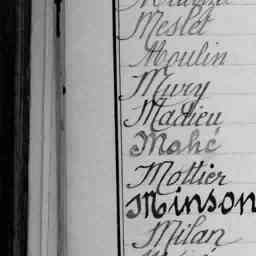 Meslet
Moulin
Mury
Madieu
Mahé
Mottier
Minson
Milan